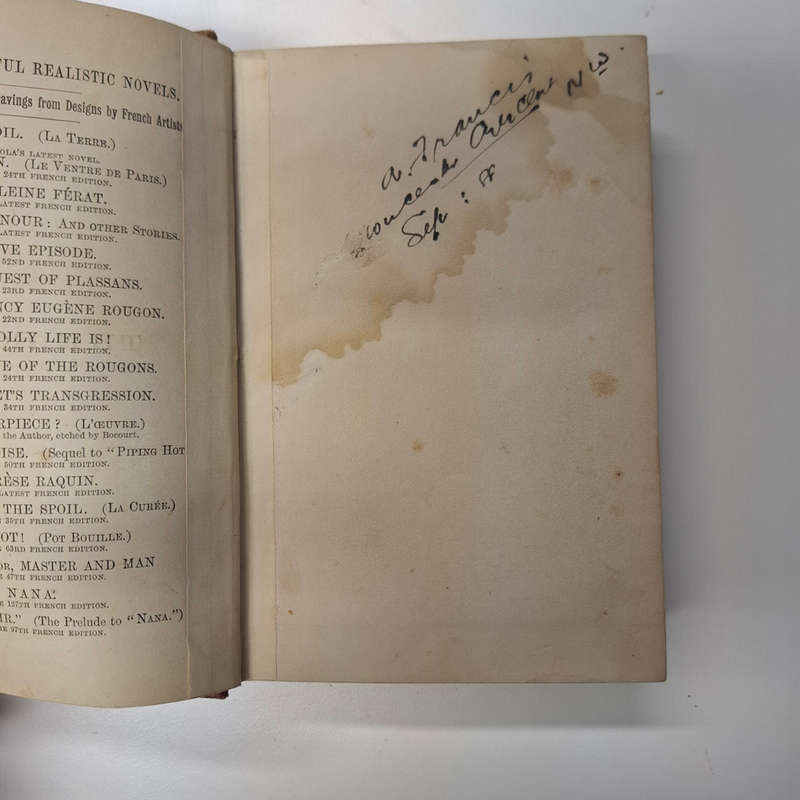 FUL REALISTIC NOVELS.
ravings from Designs by French Artists
OIL. (LA TERRE.)
OLA'S LATEST NOVEL.
N. (LE VENTRE DE PARIS.)
24TH FRENCH EDITION.
LEINE FÉRAT.
LATEST FRENCH EDITION.
NOUR: AND OTHER STORIES.
LATEST FRENCH EDITION.
VE EPISODE.
52ND FRENCH EDITION.
UEST OF PLASSANS.
23RD FRENCH EDITION.
NCY EUGÈNE ROUGON.
22ND FRENCH EDITION.
OLLY LIFE IS!
44TH FRENCH EDITION.
E OF THE ROUGONS.
24TH FRENCH EDITION.
ET'S TRANSGRESSION.
34TH FRENCH EDITION.
RPIECE? (L'ŒUVRE.)
the Author, etched by Bocourt.
ISE. (Sequel to "PIPING HOT
50TH FRENCH EDITION.
RÈSE RAQUIN.
LATEST FRENCH EDITION.
THE SPOIL. (LA CURÉE.)
35TH FRENCH EDITION.
OT! (POT BOUILLE.)
E 63RD FRENCH EDITION.
OR, MASTER AND MAN
E 47TH FRENCH EDITION.
NANA:
E 127TH FRENCH EDITION.
IR." (The Prelude to "NANA.")
HE 97TH FRENCH EDITION.
A. Francis
Crescent NW.
Sep: